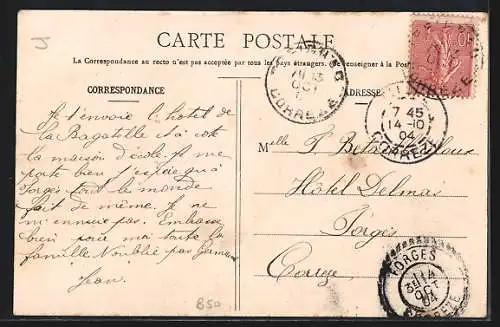 J
CARTE POSTALE
La Correspondance au recto n'est pas acceptée par tous les pays étrangers. (Se renseigner à la Poste
CORRESPONDANCE
ADRESSE
Je t'envoie l'hôtel de
la Bagatelle à côté
la maison d'école. Je me
porte bien j'espère qu'à
Forgès tout le monde
fait de même. Je ne
m'ennuie pas. Embrasse
bien pour moi toute la
famille N'oublie pas
Jean.
Melle
Hôtel Delmas
Forgès
Corrèze
CORREZE
7 45
14 -10
04
CORREZE
FORGES
OCT
04
CORREZE
B50